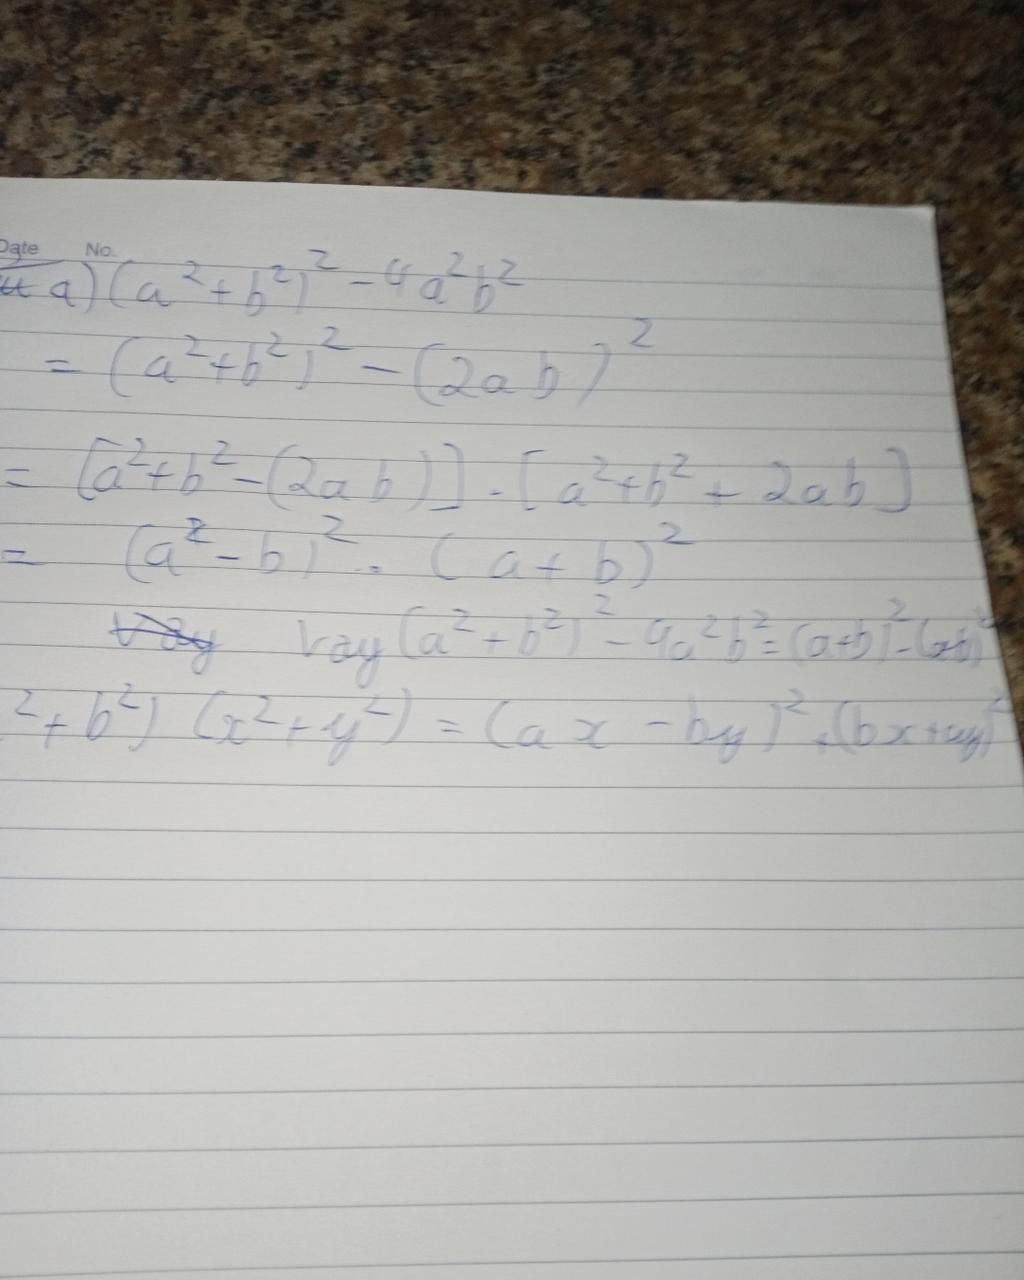 Date No.
a) (a²+b²)² - 4a²b²
= (a²+b²)² - (2ab)²
= [a²+b² - (2ab)] . [a²+b² + 2ab]
= (a² - b)² . (a + b)²
Vay (a² + b²)² - 4a²b² = (a+b)² - (a-b)²
²+b²) (x²+y²) = (ax - by)² + (bx+ay)²